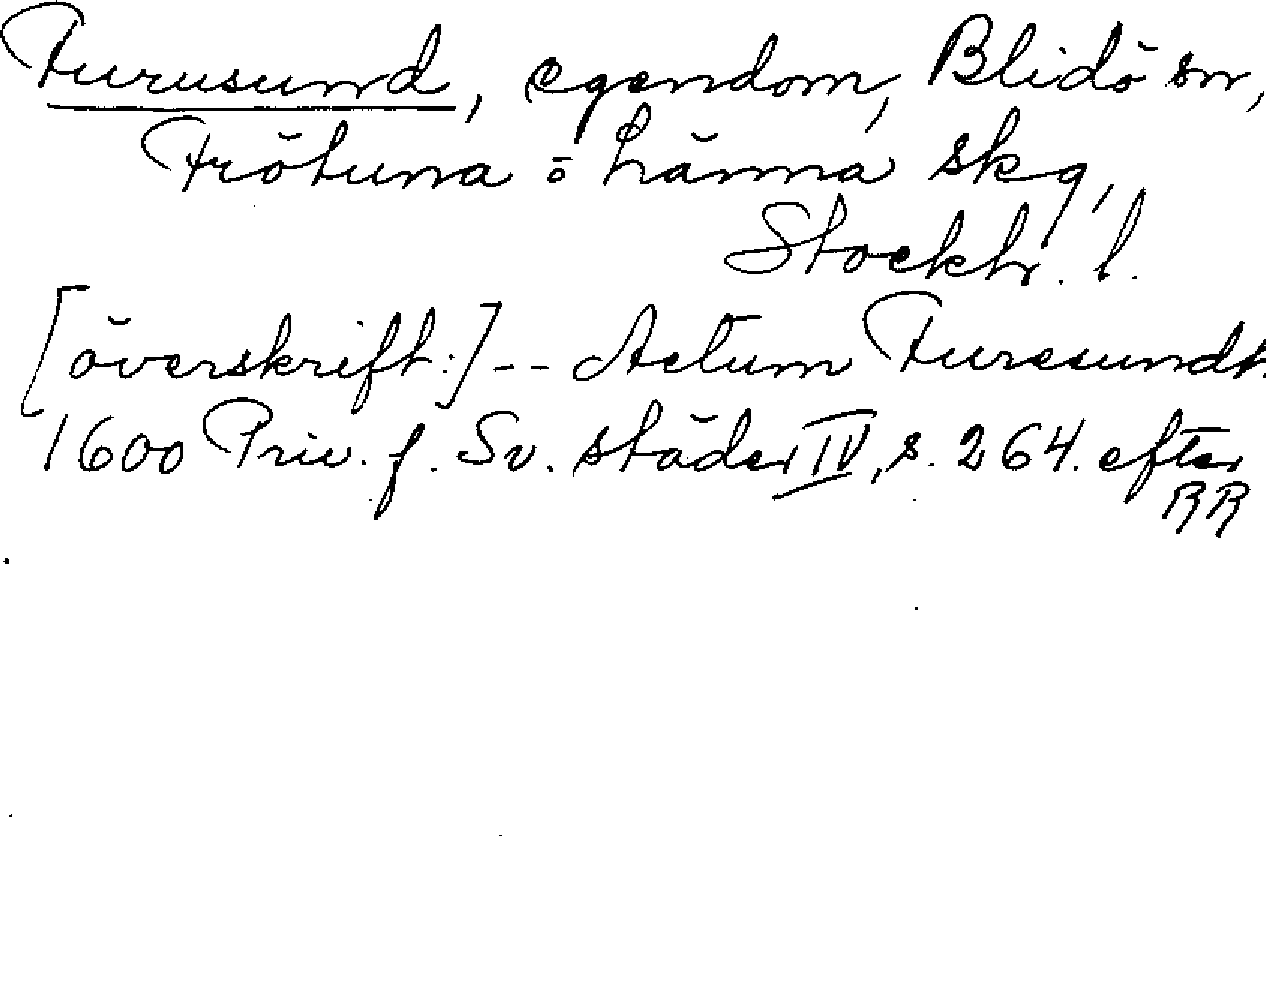 Furusund, egendom, Blidö sn,
Frötuna o Länna skg,
Stockh. l.
[överskrift:] -- Actum Furesundh
1600 Priv. f. Sv. städer IV, s. 264. efter
RR